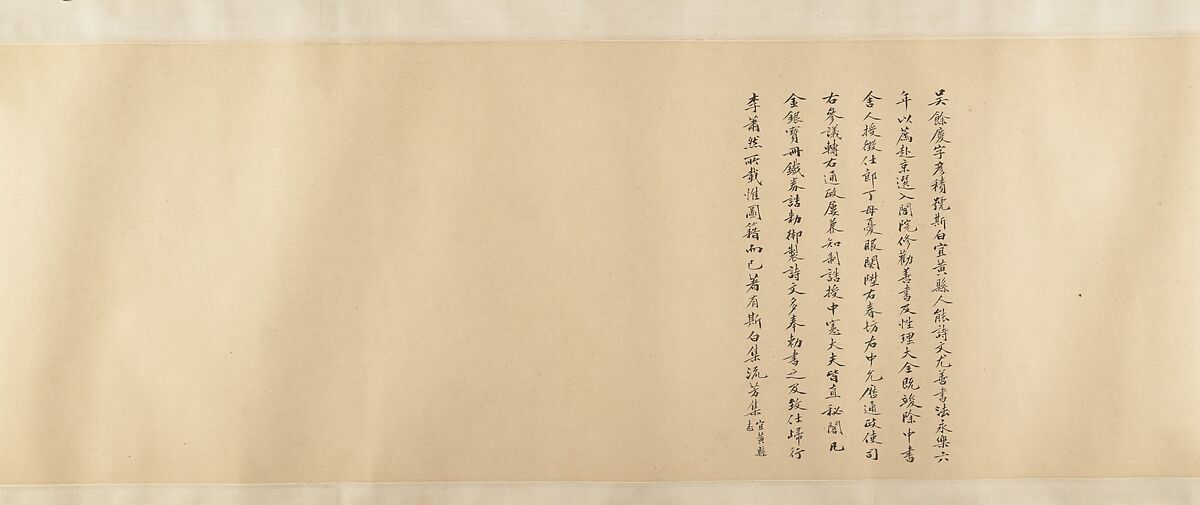 吳餘慶字彥積號斯白宜黃縣人能詩文尤善書法永樂六
年以薦赴京選入閣院修勸善書及性理大全既竣除中書
舍人授徵仕郎丁母憂服闋陞右春坊右中允歷通政使司
右參議轉右通政屢兼知制誥授中憲大夫皆直秘閣凡
金銀寶冊鐵券誥勅御製詩文多奉勅書之及致仕歸行
李蕭然所載惟圖籍而已著有斯白集流芳集宜黃縣
志